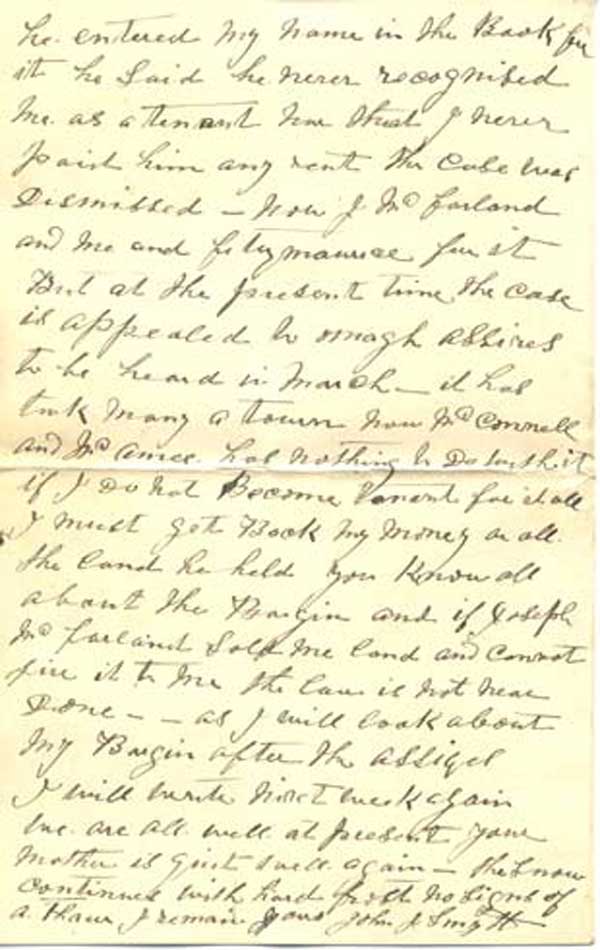 he entered my name in the Book for
it he said he never recognised
me as a tenant nor that I never
paid him any rent the case was
Dismissed - now J Mc farland
and me and fitzmaurice for it
But at the present time the case
is appealed to omagh assizes
to be heard in March - it has
took many a town now Mc Connell
and Mc amee has nothing to Do with it
if I Do not Become tenant for it all
I must get Back My Money or all
the land he held you know all
about the Bargin and if Joseph
Mc farland Sold me land and cannot
give it to me the law is not near
Done - - as I will look about
my Bargin after the assizes
I will write next week again
we are all well at present your
mother is quit well again - the snow
continues with hard frost no signs of
a thaw I remain yours John J. Smyth